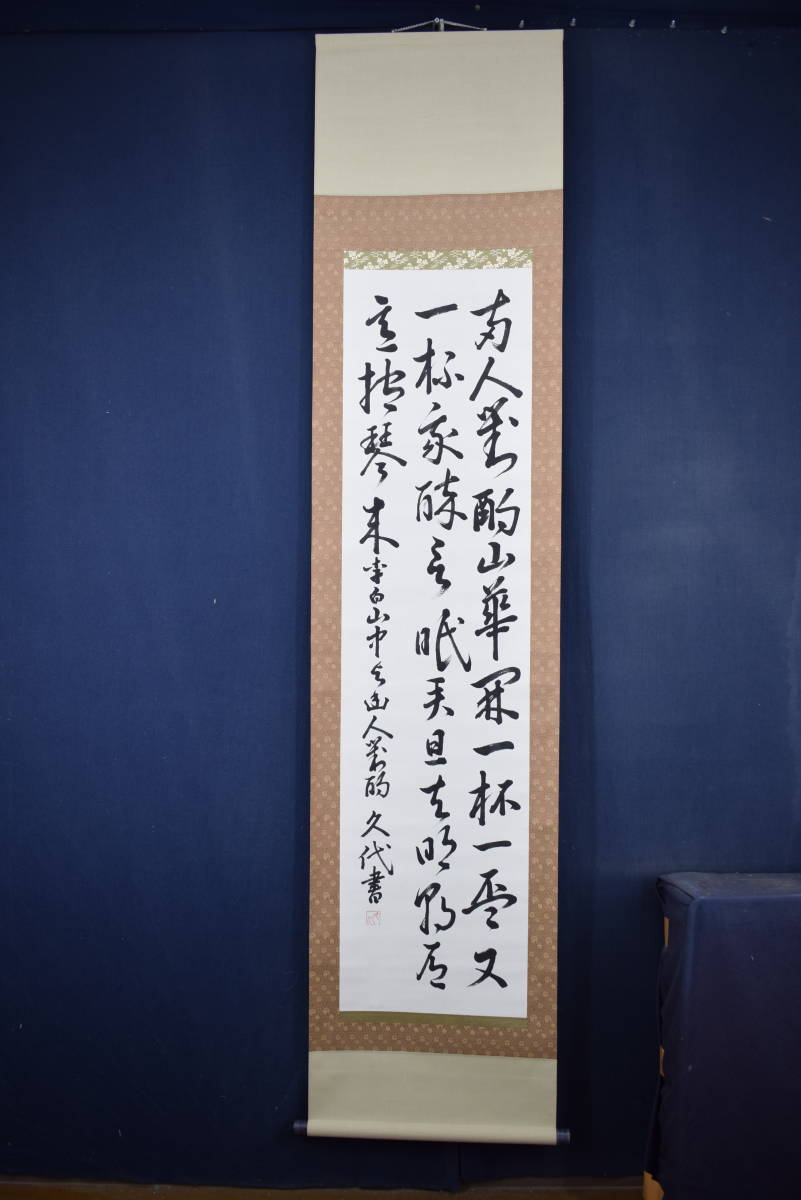 両人對酌山華開一杯一盃又
一杯我酔欲眠君且去明朝有
意抱琴来 李白山中与幽人對酌 久代書